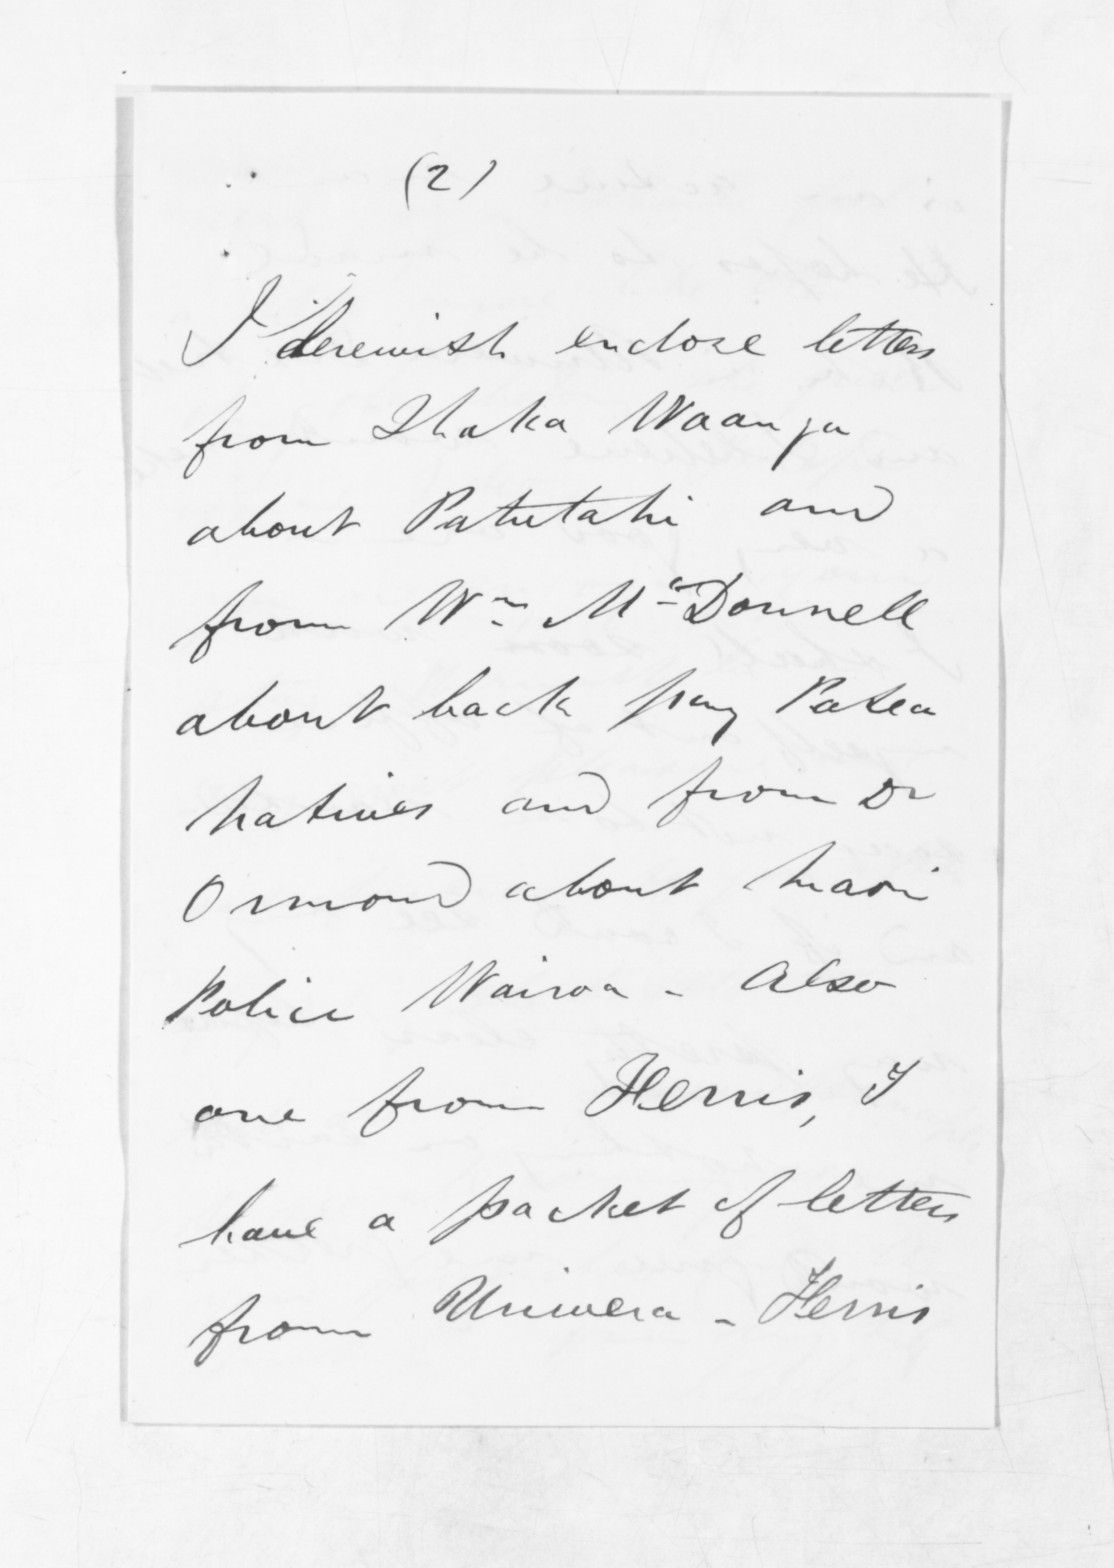 (2)
I herewith enclose letters
from Ihaka Waanga
about Patutahi and
from Wm McDonnell
about back pay Patea
natives and from Dr
Ormond about Maori
Police Wairoa - Also
one from Herris, I
have a packet of letters
from Uniwera - Herris